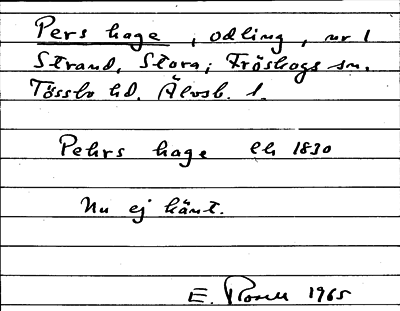 Pers hage, odling, nr 1
Strand, Stora; Fröskogs sn.
Tössbo hd. Älvsb. l.
Pehrs hage Lh 1830
Nu ej känt.
E. Rosell 1965